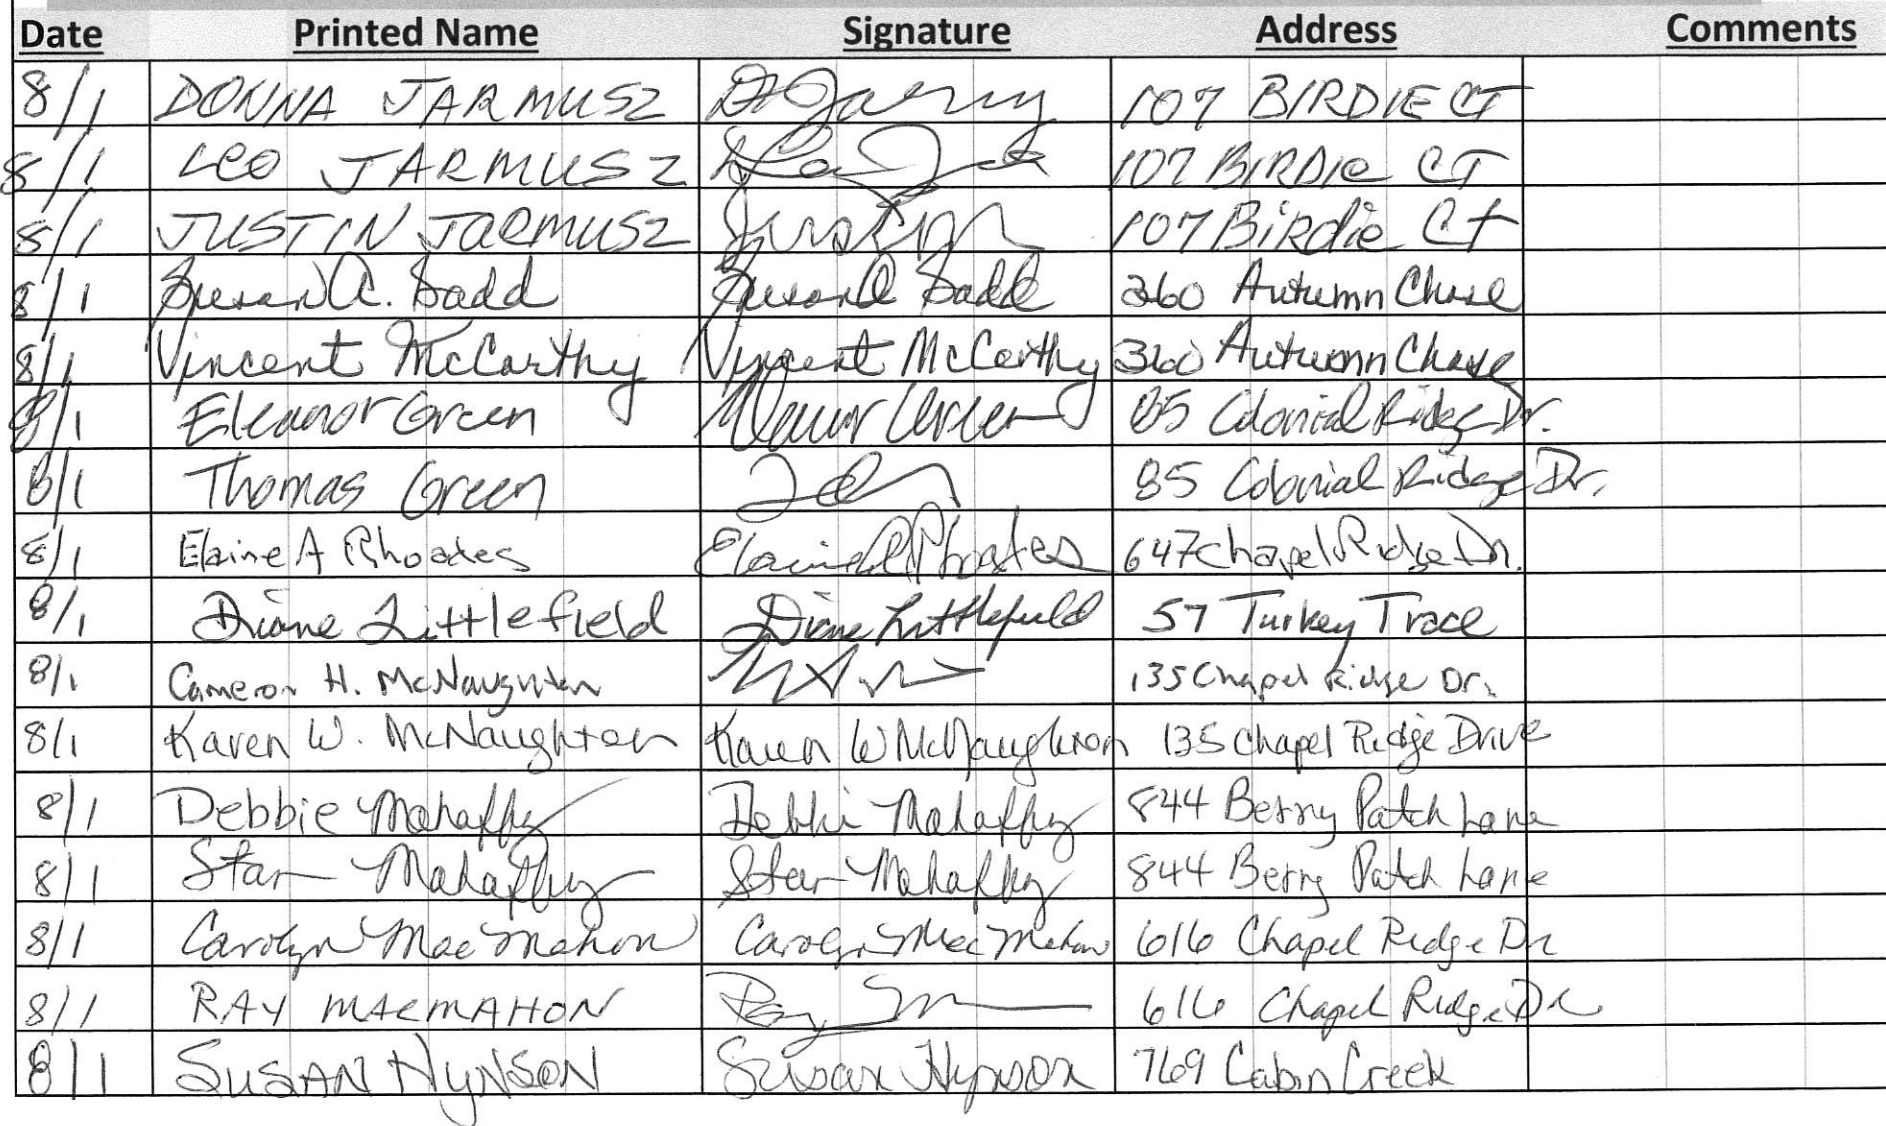 Date Printed Name Signature Address Comments
8/1 DONNA JARMUSZ 107 BIRDIE CT
8/1 LEO JARMUSZ 107 BIRDIE CT
8/1 JUSTIN JARMUSZ Justin 107 Birdie Ct
8/1 Susan A. Badd Susan A Badd 360 Autumn Chase
8/1 Vincent McCarthy Vincent McCarthy 360 Autumn Chase
8/1 Eleanor Green Eleanor Green 85 Colonial Ridge Dr.
8/1 Thomas Green 85 Colonial Ridge Dr.
8/1 Elaine A Rhoades Elaine A Rhoades 647 Chapel Ridge Dr.
8/1 Diane Littlefield Diane Littlefield 57 Turkey Trace
8/1 Cameron H. McNaughton 135 Chapel Ridge Dr.
8/1 Karen W. McNaughton Karen W McNaughton 135 Chapel Ridge Drive
8/1 Debbie Mahaffy Debbi Mahaffy 844 Berry Patch Lane
8/1 Stan Mahaffy Stan Mahaffy 844 Berry Patch Lane
8/1 Carolyn MacMahon Carolyn MacMahon 616 Chapel Ridge Dr
8/1 RAY MACMAHON Ray 616 Chapel Ridge Dr
8/1 SUSAN HYNSON Susan Hynson 769 Cabin Creek